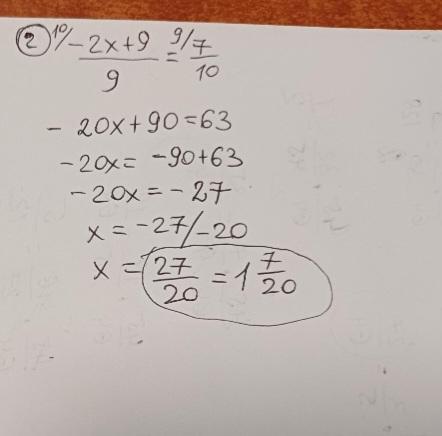 ② 10/ -2x+9/9 = 9/ 7/10
- 20x+90=63
-20x= -90+63
-20x=-27
x=-27/-20
x= 27/20 = 1 7/20